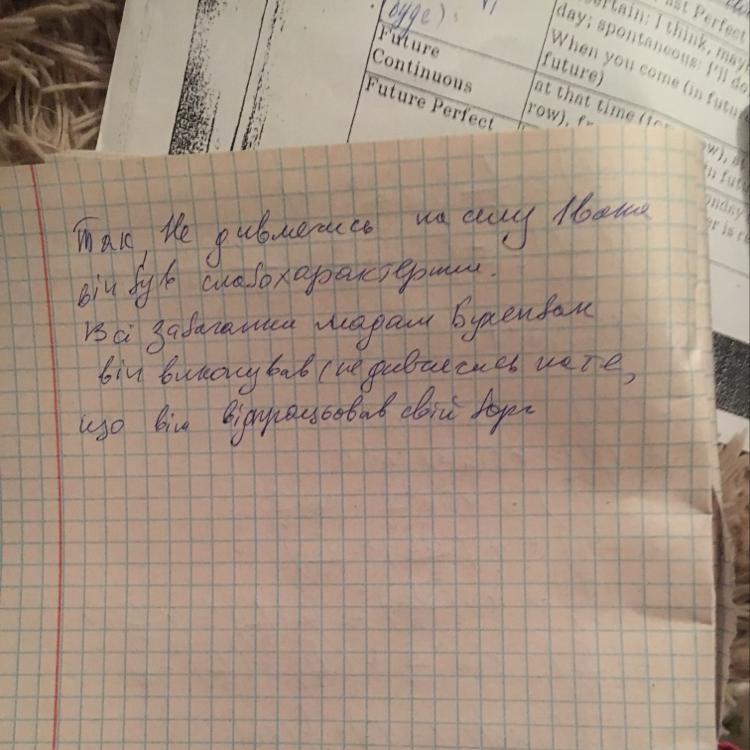 буде).
Future
Continuous
Future Perfect
Perfect
certain; I think, may
day; spontaneous: I'll do
When you come (in futu
future)
at that time (
row), f
Так, Не дивлячись на силу Івана
він був слабохарактерним.
Всі забаганки мадам Бухенбах
він виконував (не дивлячись на те,
що він відпрацьовав свій борг